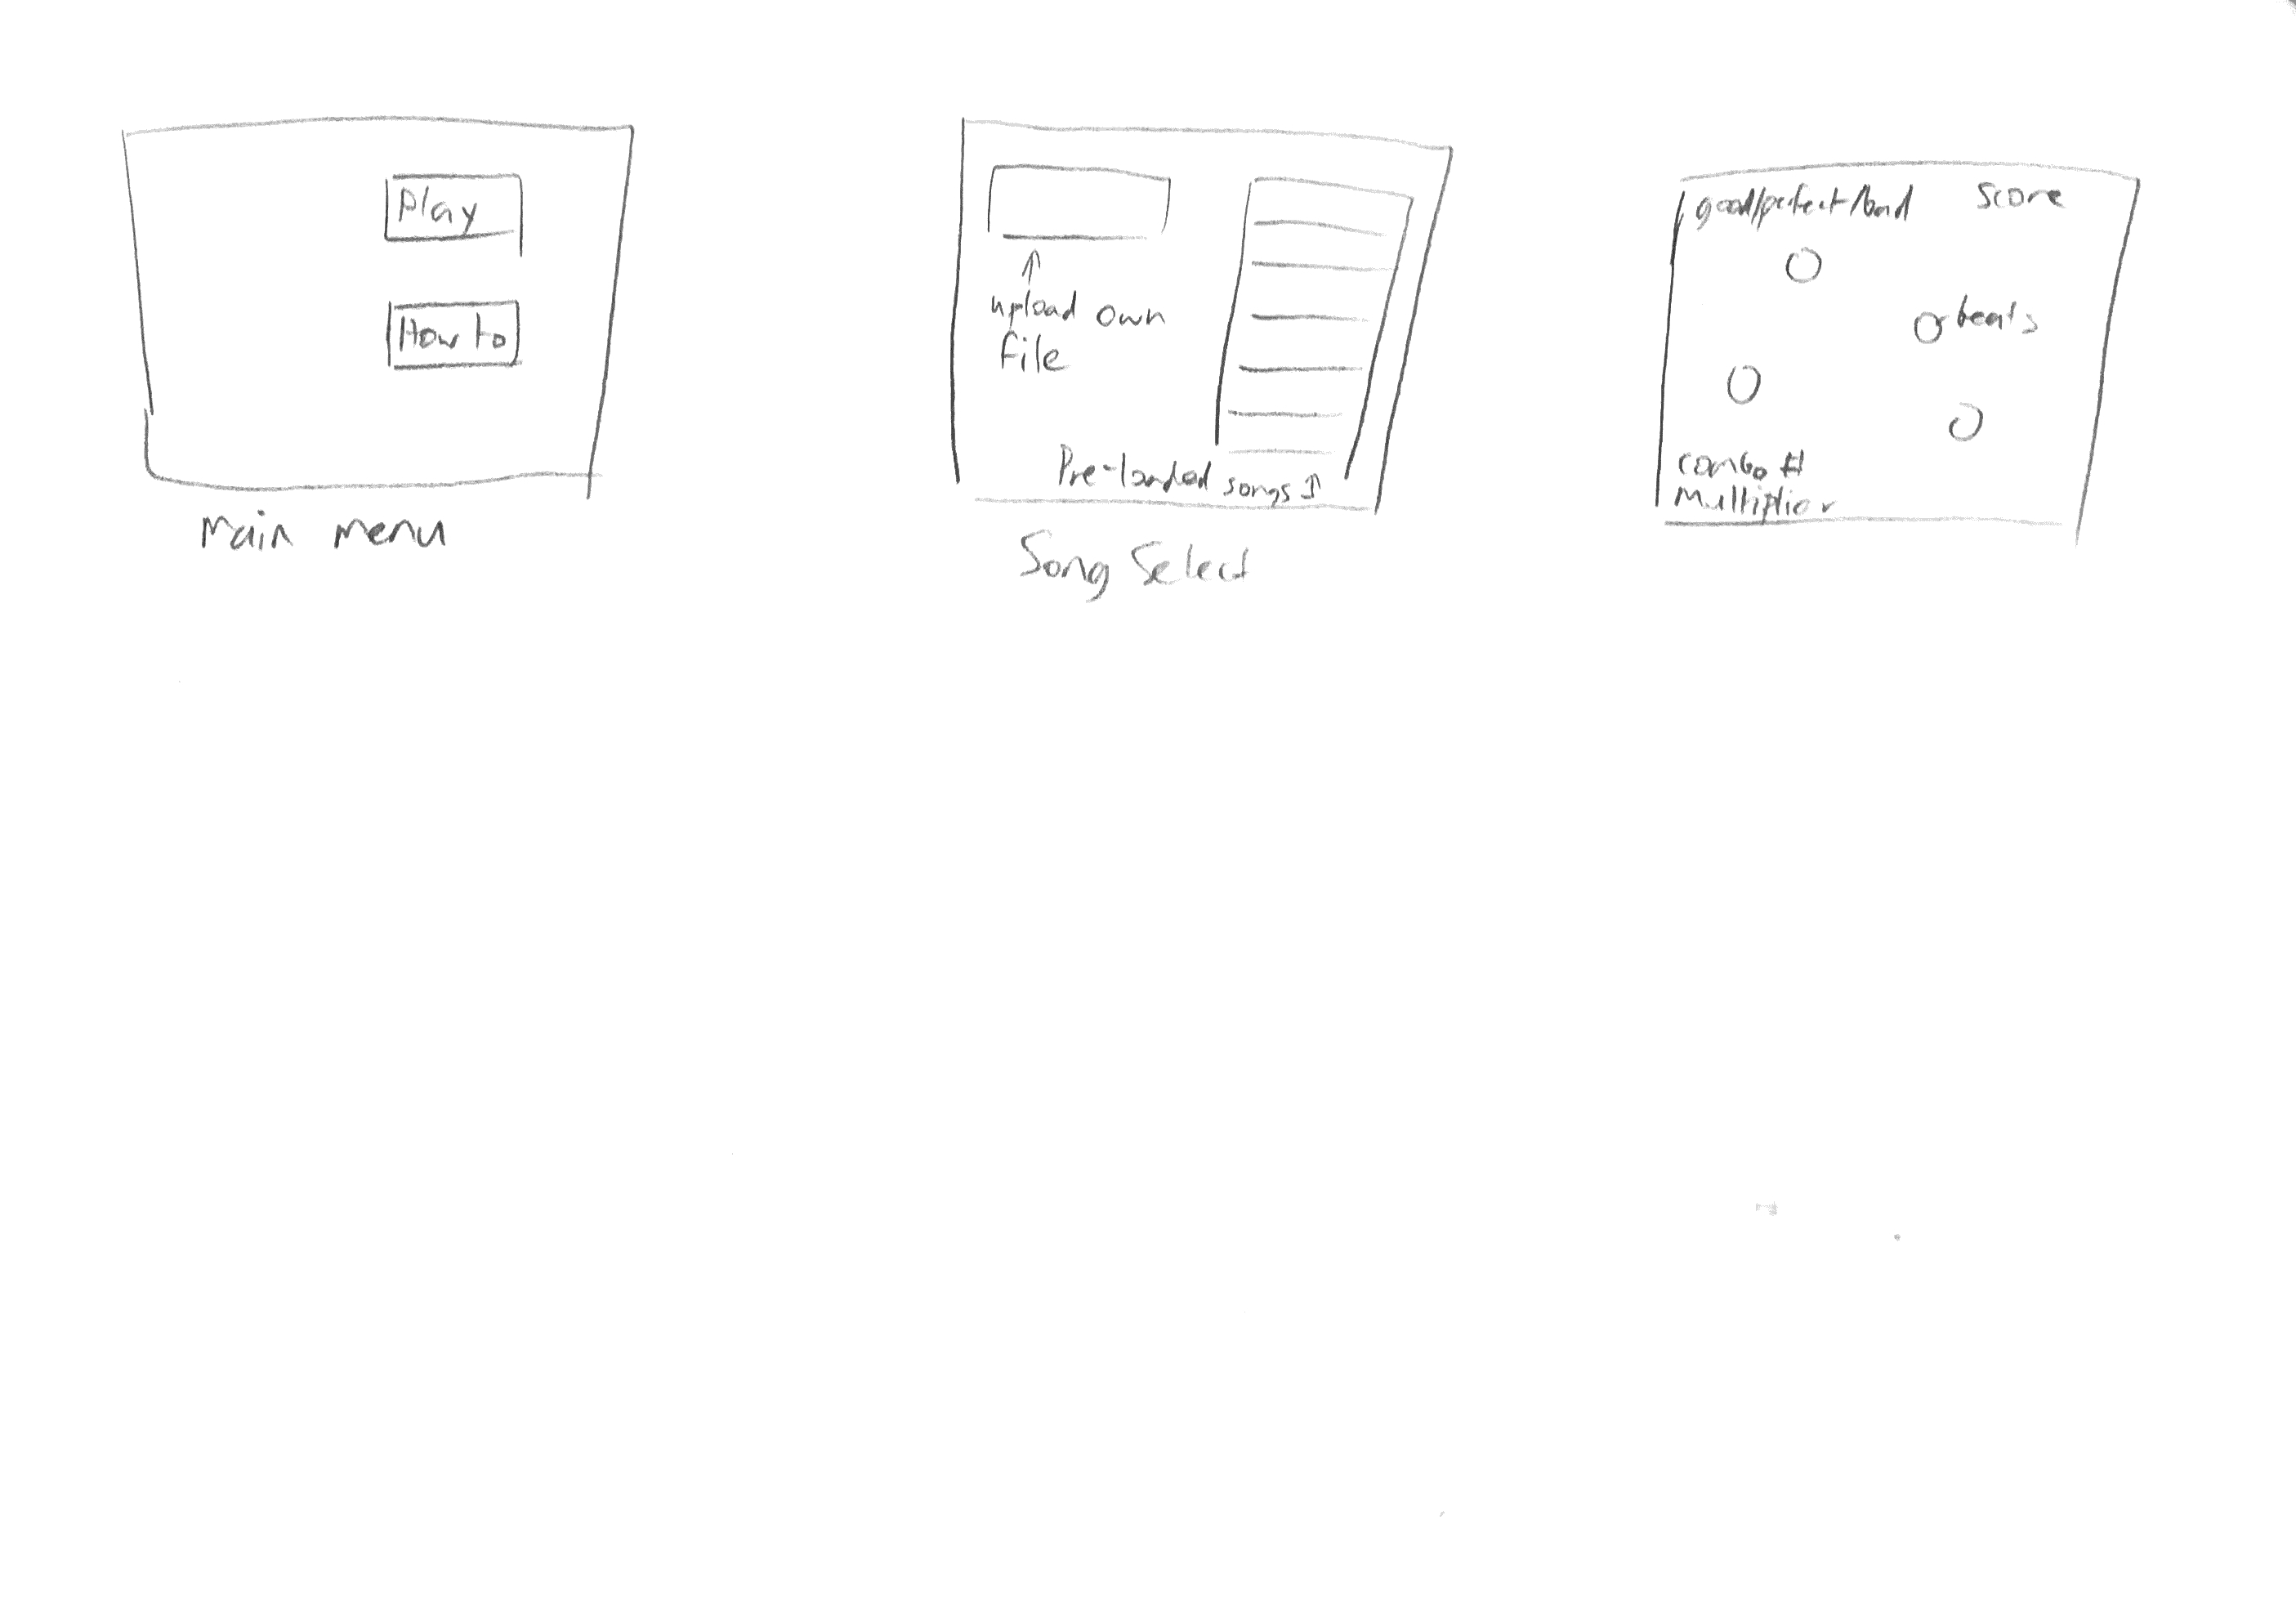 Play
How to
Main menu
upload own
file
Pre-loaded songs ↑
Song Select
good/perfect/bad
Score
beats
combo #
Multiplier